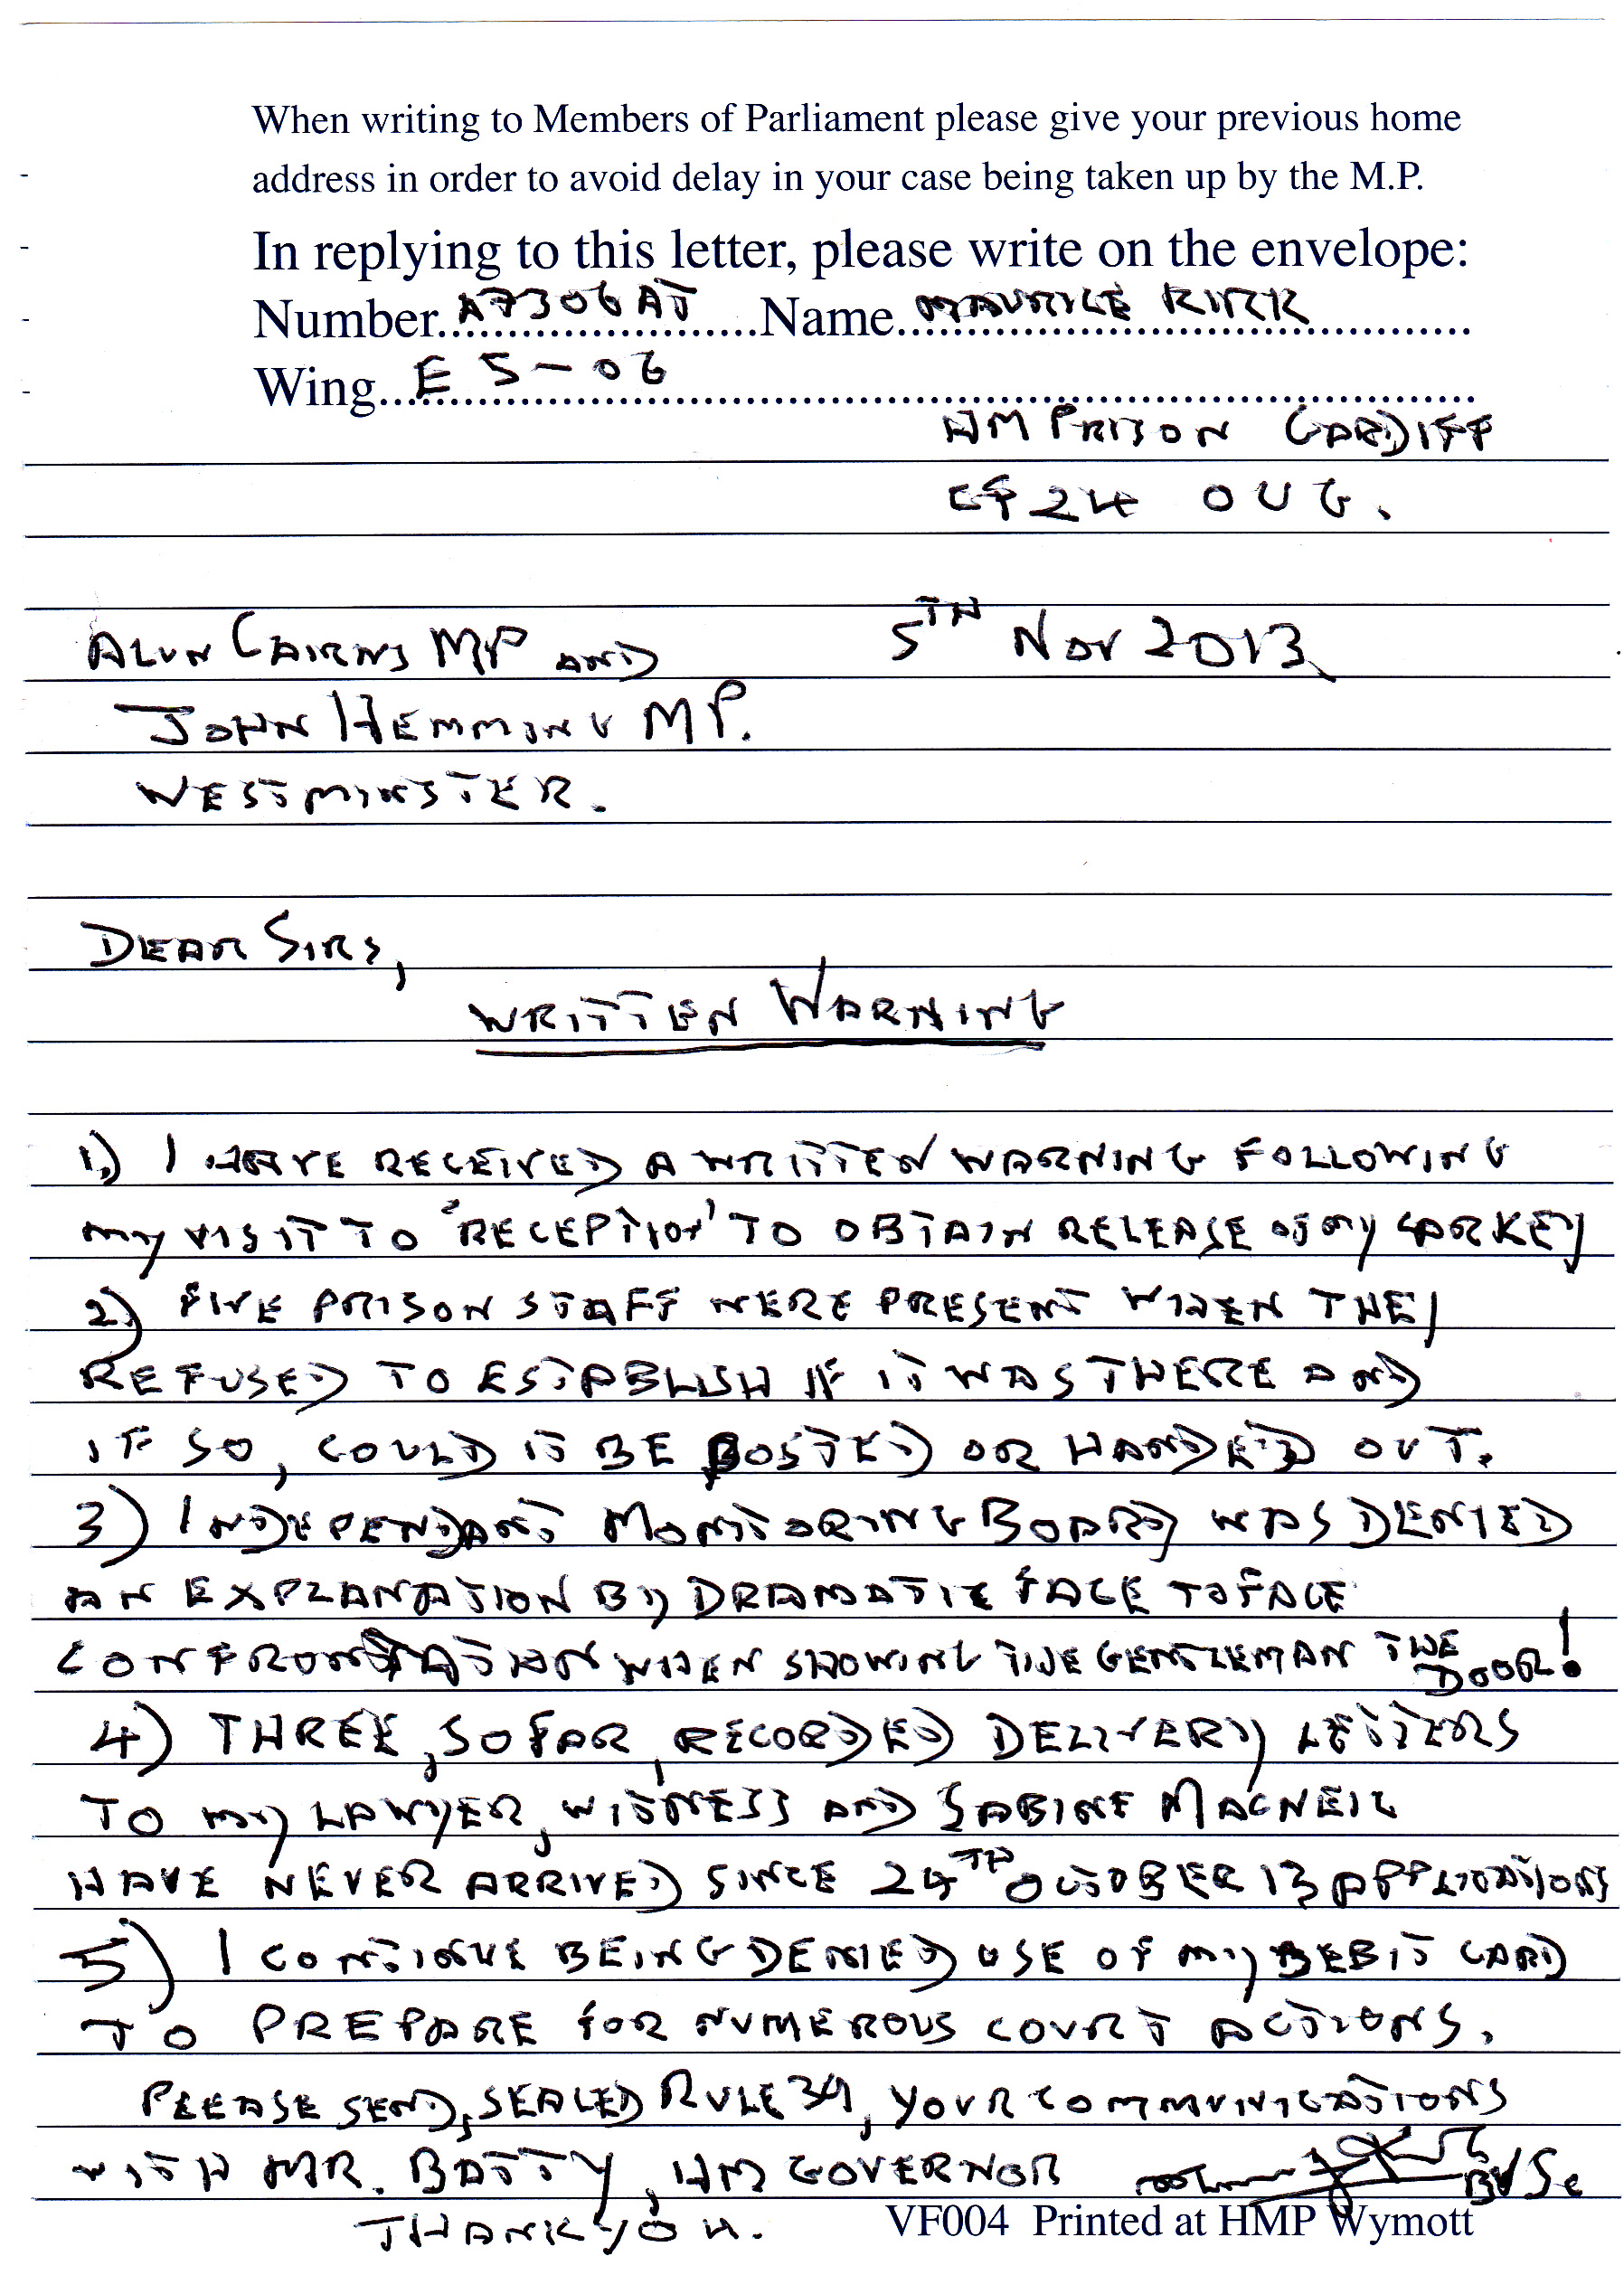 When writing to Members of Parliament please give your previous home
address in order to avoid delay in your case being taken up by the M.P.
In replying to this letter, please write on the envelope:
Number A7306AJ Name MAURICE KIRK
Wing E 5-06
HM PRISON CARDIFF
CF24 0UG.
ALUN CAIRNS MP AND 5TH NOV 2013
JOHN HEMMING MP.
WESTMINSTER.
DEAR SIRS,
WRITTEN WARNING
1) I HAVE RECEIVED A WRITTEN WARNING FOLLOWING
MY VISIT TO 'RECEPTION' TO OBTAIN RELEASE OF MY CAR KEY
2) FIVE PRISON STAFF WERE PRESENT WHEN THEY
REFUSED TO ESTABLISH IF IT WAS THERE AND
IF SO, COULD IT BE POSTED OR HANDED OUT.
3) INDEPENDANT MONITORING BOARD WAS DENIED
AN EXPLANATION BY DRAMATIC FACE TO FACE
CONFRONTATION WHEN SHOWING THE GENTLEMAN THE DOOR!
4) THREE, SO FAR, RECORDED DELIVERY LETTERS
TO MY LAWYER, WITNESS AND SABINE MACNEIL
HAVE NEVER ARRIVED SINCE 24TH OCTOBER 13 APPLICATIONS
5) I CONTINUE BEING DENIED USE OF MY DEBIT CARD
TO PREPARE FOR NUMEROUS COURT ACTIONS.
PLEASE SEND, SEALED RULE 39, YOUR COMMUNICATIONS
WITH MR. BATTY, HM GOVERNOR BVSc
THANK YOU.
VF004 Printed at HMP Wymott